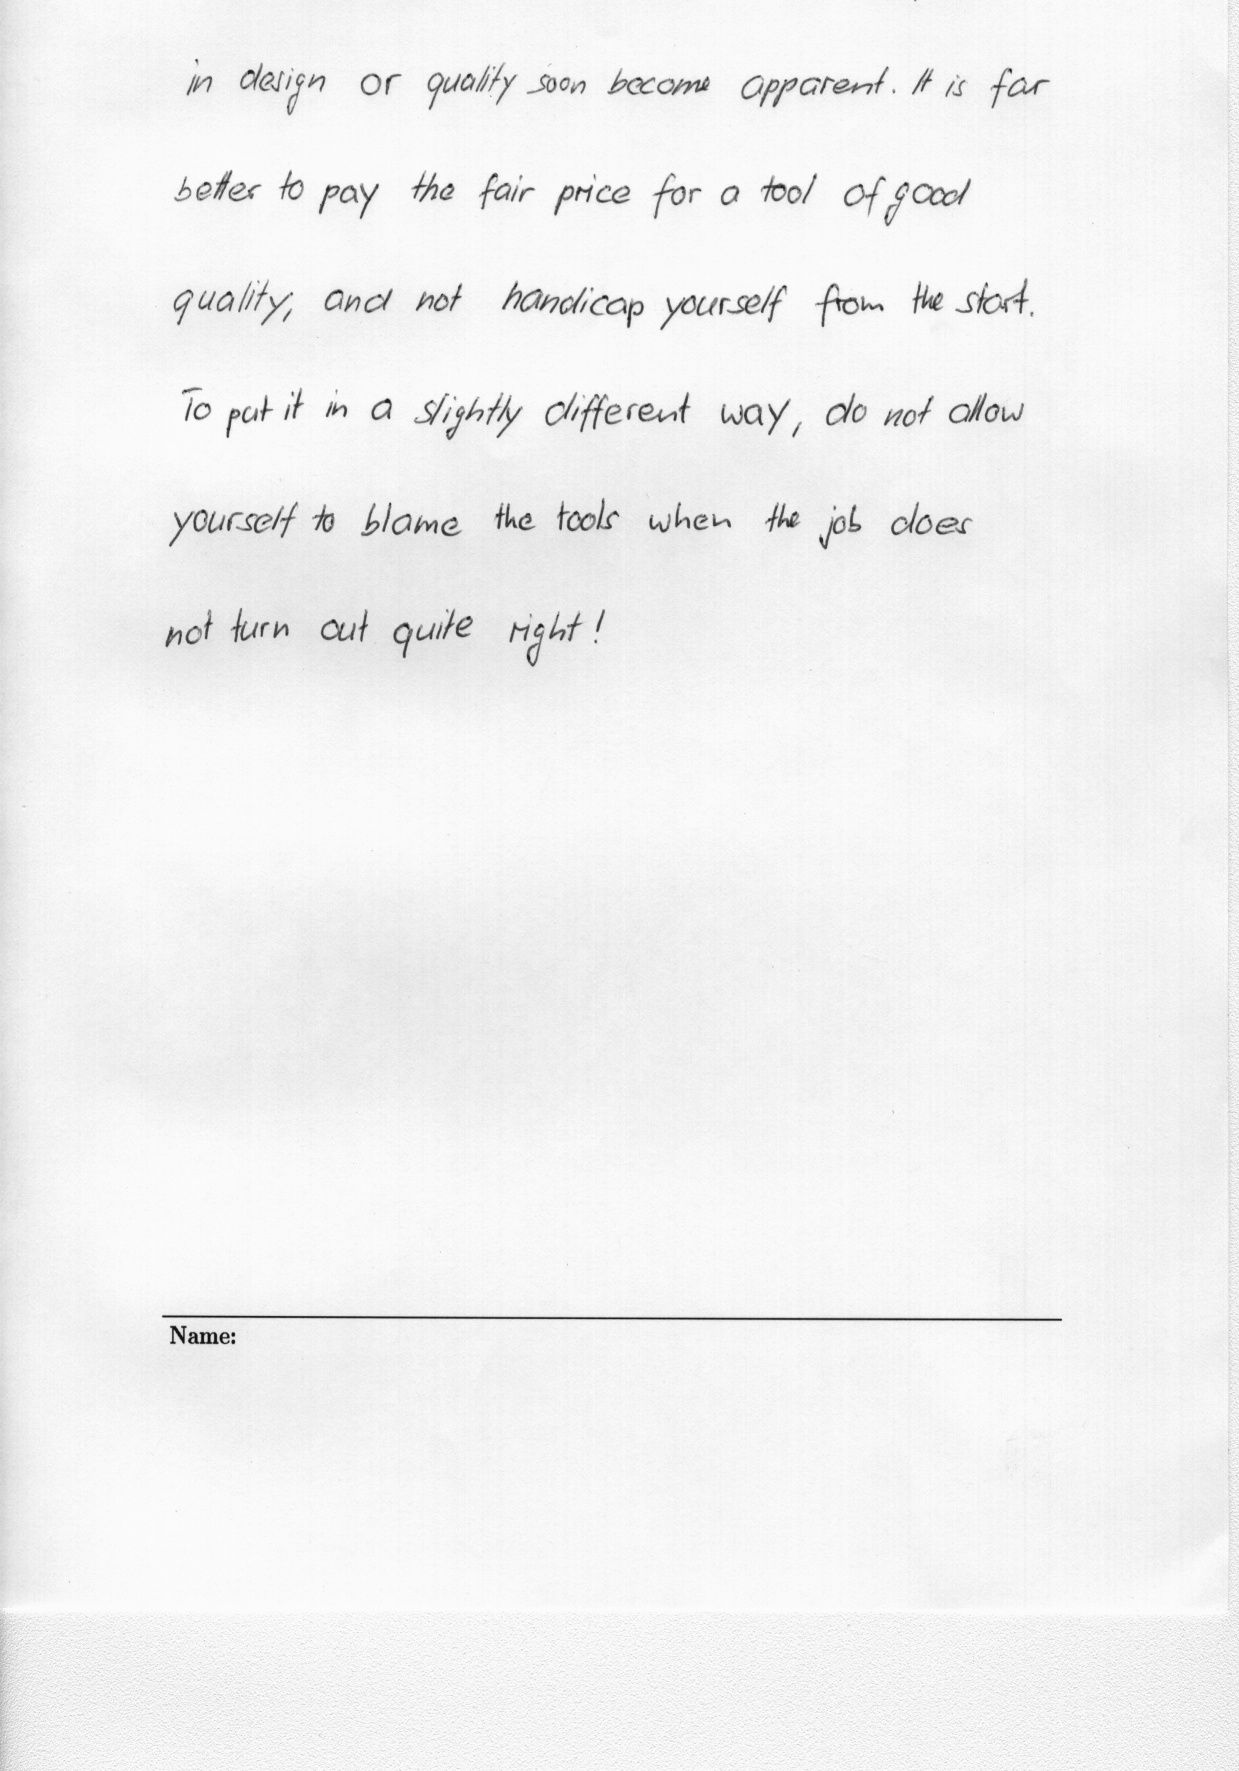 in design or quality soon become apparent. It is far
better to pay the fair price for a tool of good
quality, and not handicap yourself from the start.
To put it in a slightly different way, do not allow
yourself to blame the tools when the job does
not turn out quite right!
Name: